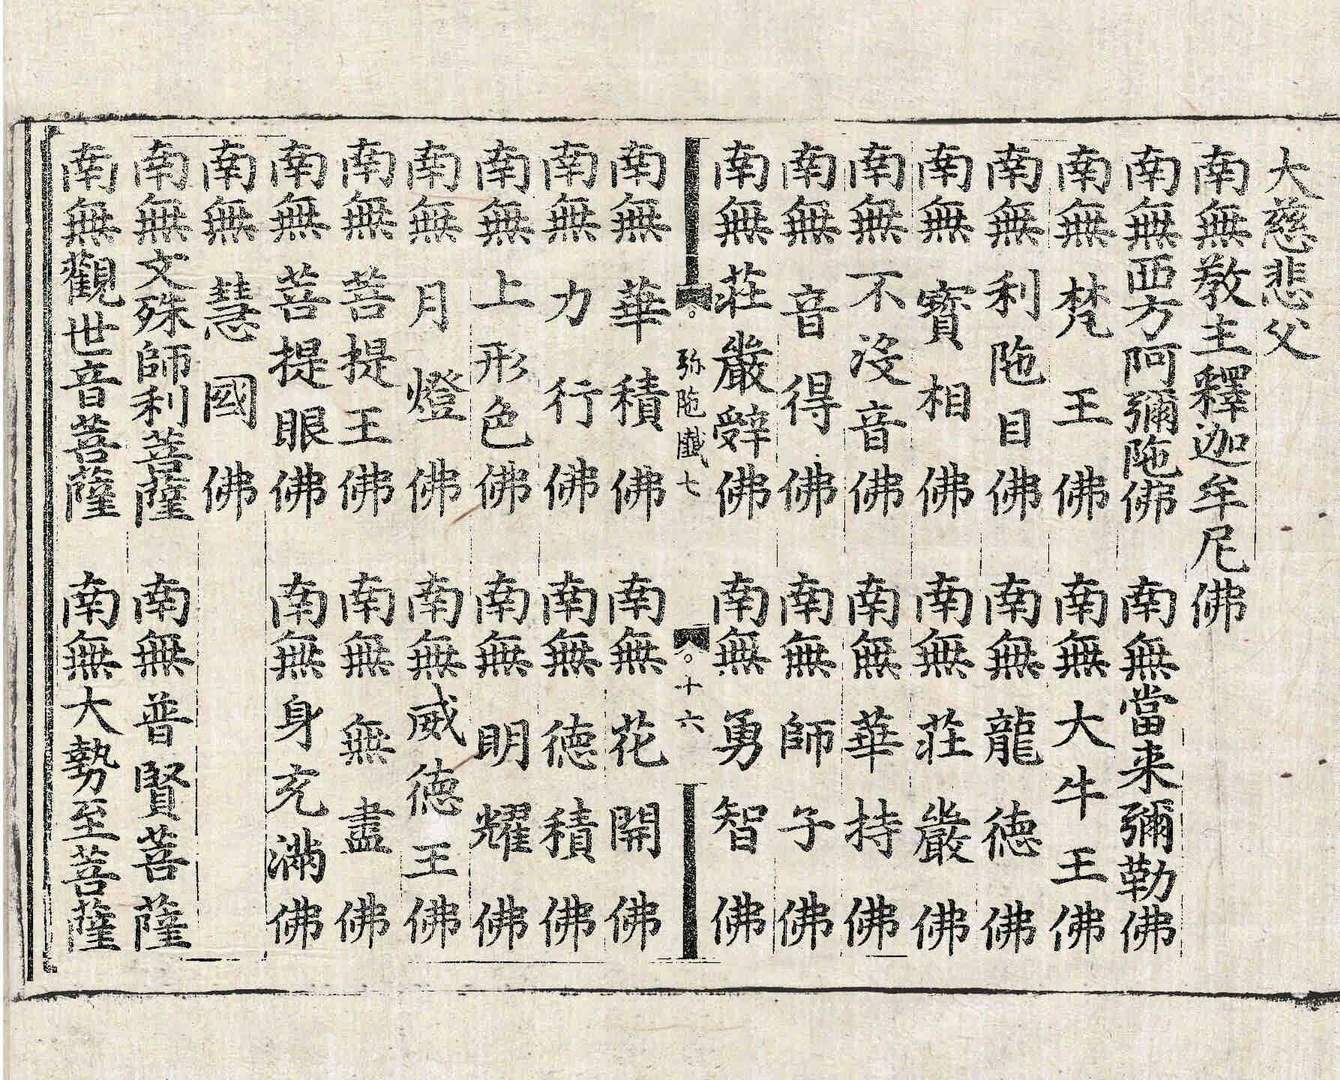 大慈悲父
南無教主釋迦牟尼佛
南無西方阿彌陁佛 南無當来彌勒佛
南無梵王佛 南無大牛王佛
南無利陁目佛 南無龍德佛
南無寳相佛 南無莊嚴佛
南無不沒音佛 南無華持佛
南無音得佛 南無師子佛
南無莊嚴辭佛 南無勇智佛
弥陁懺七 十六
南無華積佛 南無花開佛
南無力行佛 南無德積佛
南無上形色佛 南無明耀佛
南無月燈佛 南無威德王佛
南無菩提王佛 南無無盡佛
南無菩提眼佛 南無身充滿佛
南無慧國佛
南無文殊師利菩薩 南無普賢菩薩
南無觀世音菩薩 南無大勢至菩薩